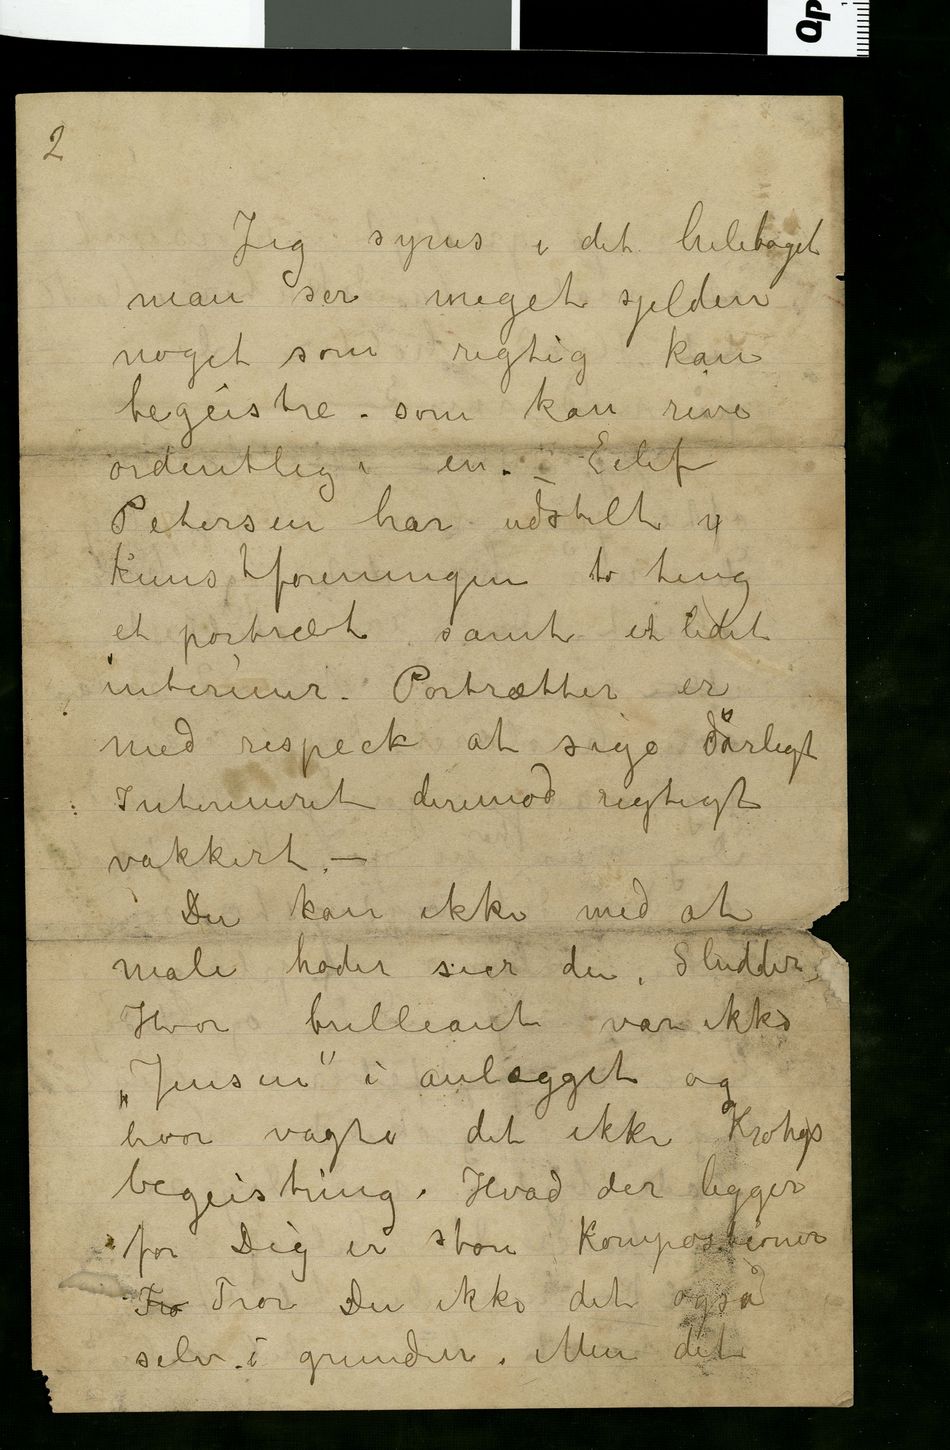 2
Jeg synes i det heletaget
man ser meget sjelden
noget som rigtig kan
begeistre - som kan rive
ordentlig i en. – Eilif
Petersen har udstilt i
Kunstforeningen to ting
et portræt samt et lidet
interieur – Portrættet er
med respeck at sige dårligt
Interieuret derimod rigtigt
vakkert. —
Du kan ikke med at
male hoder sier du. Sludder,
Hvor brilleant var ikke
„Jensen” i anlægget og
hvor vagte det ikke Krohgs
begeistring. Hvad der ligger
for Dig er store Kompositioner
Tro Tror Du ikke det også
selv i grunden. Men det